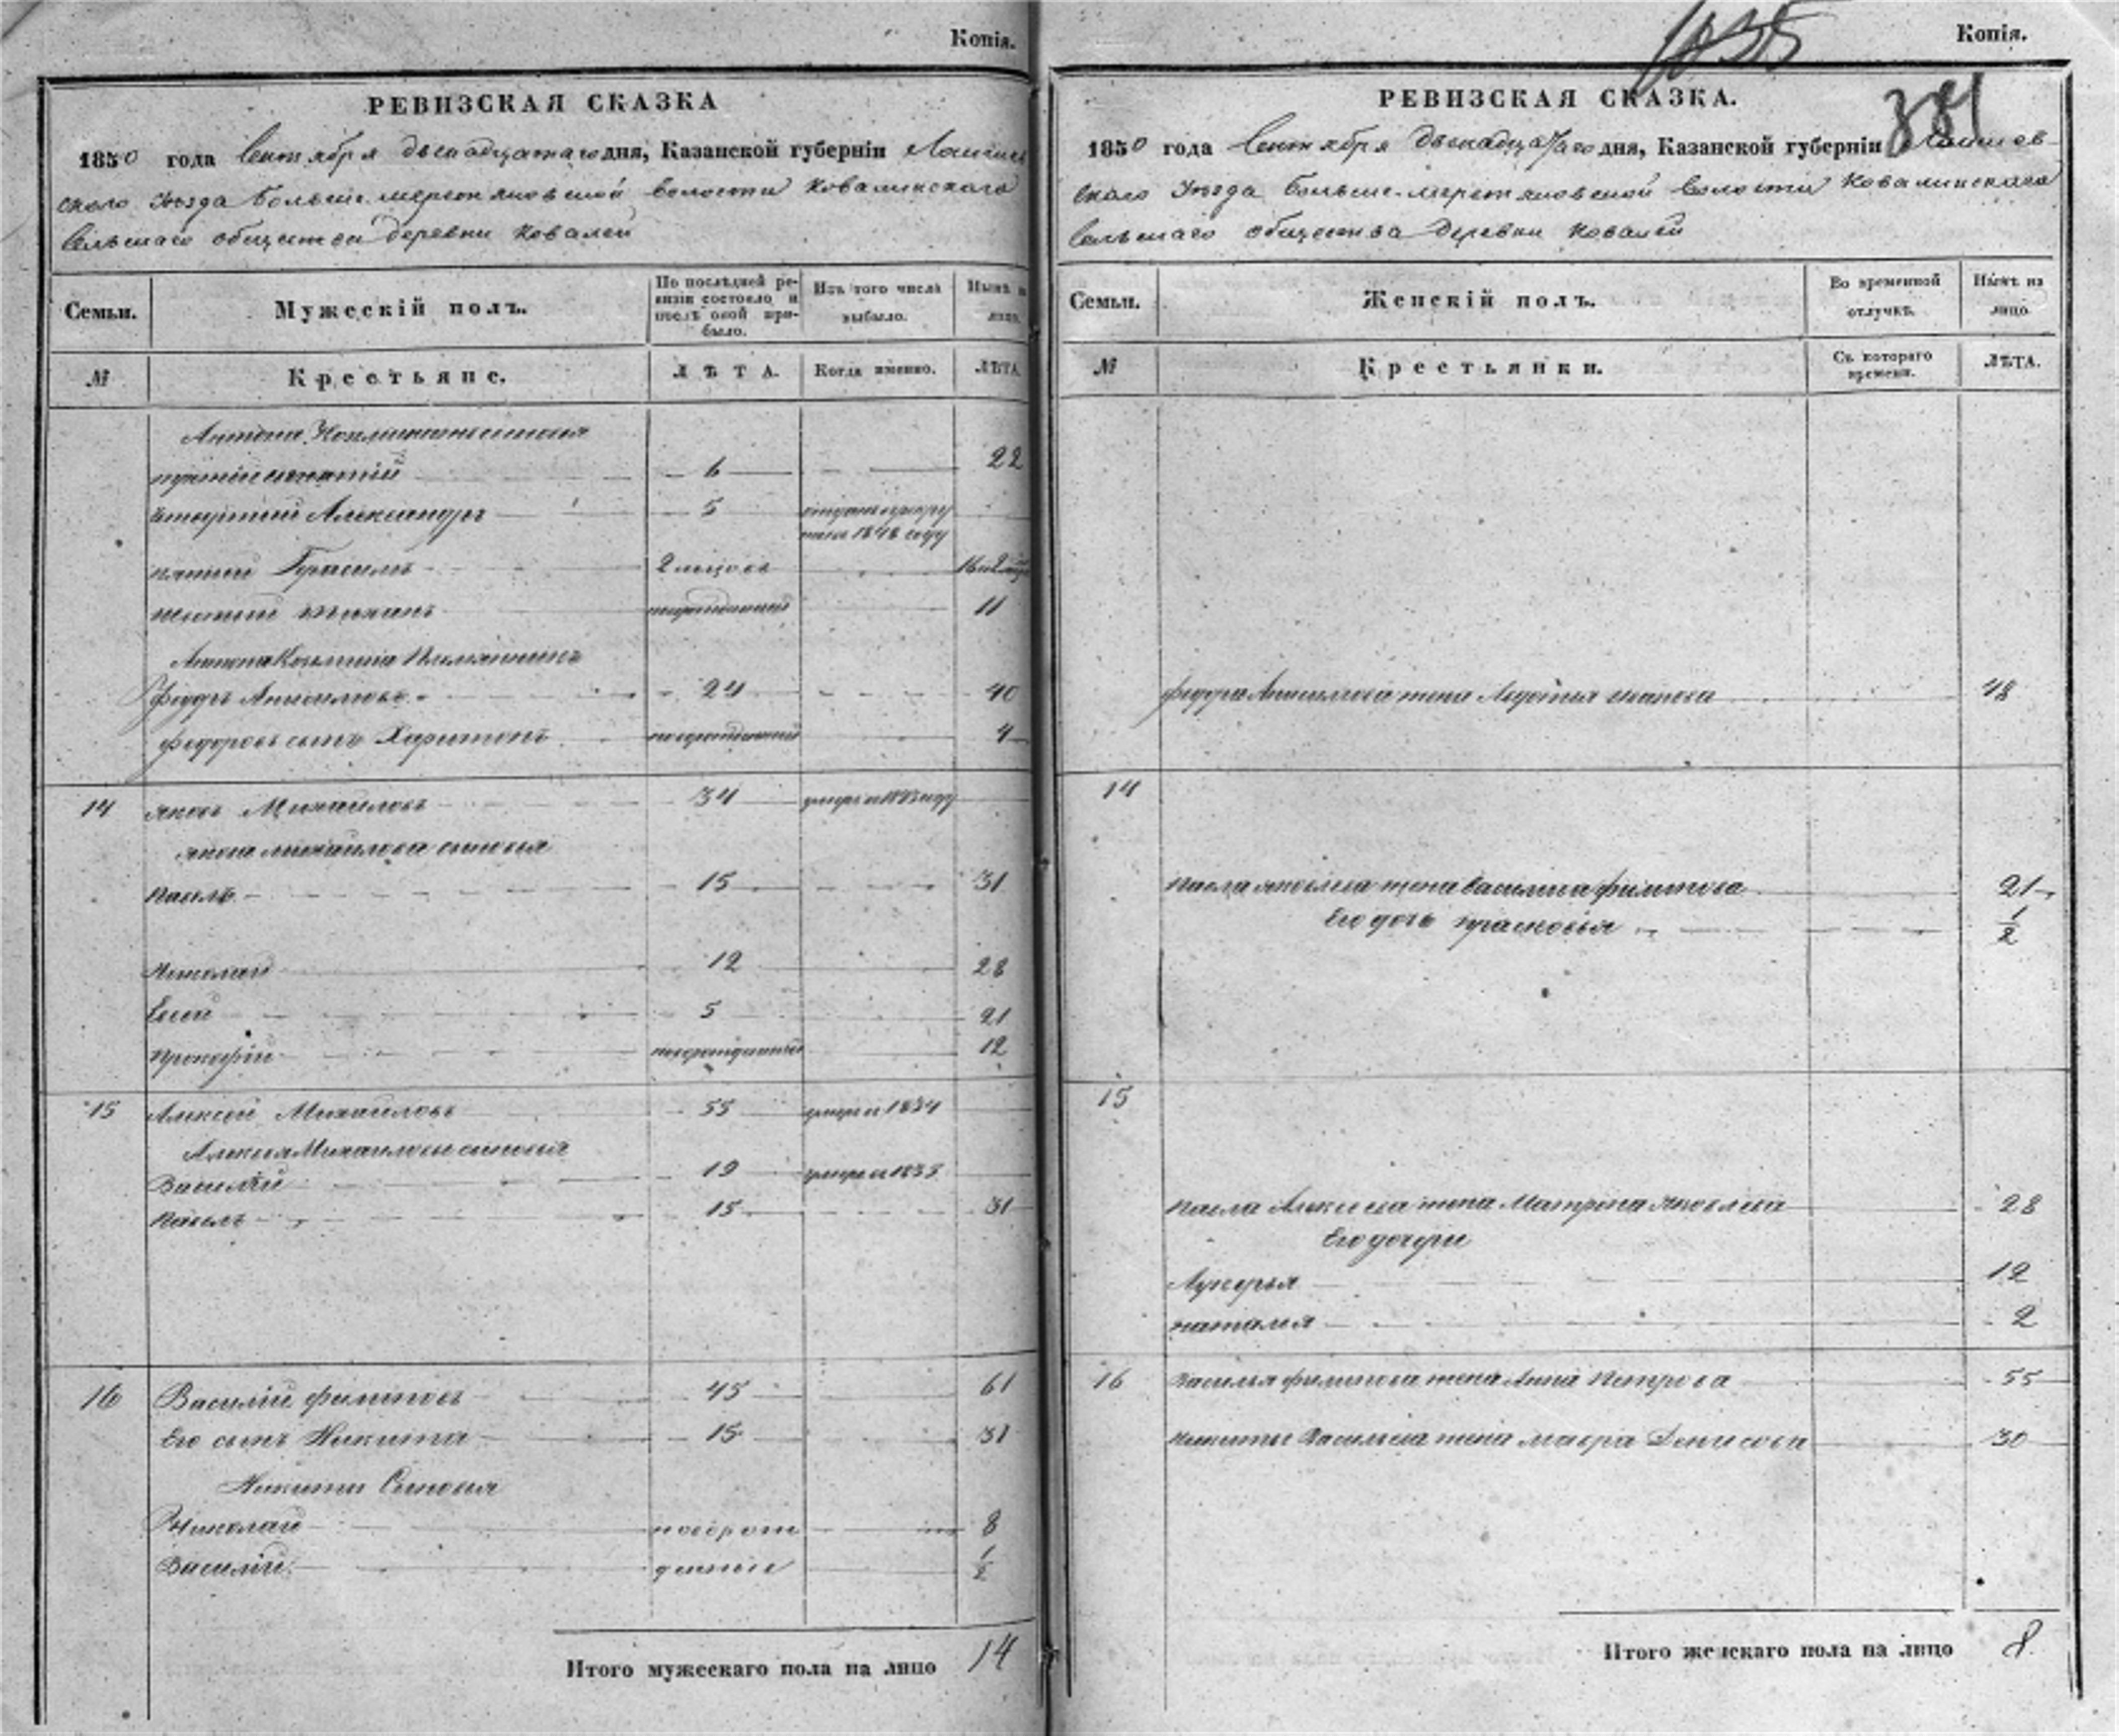 Копія.
РЕВИЗСКАЯ СКАЗКА
1850 года Сентября двенадцатаго дня, Казанской губерніи Лаишев
скаго уѣзда Больше-меретяковской волости Ковалинскаго
Сельскаго общества деревни Ковалей
Семьи. Мужескій полъ. По послѣдней ревизіи состояло и послѣ оной прибыло. Изъ того числа выбыло. Нынѣ на лицо.
№ Крестьяне. ЛѢТА. Когда именно. ЛѢТА.
Антона Козмина сыновья
третій 6 22
четвертый Александръ 5 отданъ рекруты 1848 году
пятый Герасимъ 2 мѣсяцовъ 16 и 2
шестый новорожденный 11
Антона Козмина Племянникъ
Федоръ Анисимовъ 24 40
Федоровъ сынъ Харитонъ новорожденный 4
14 Яковъ Михайловъ 34 умре в году
Якова Михайлова сыновья
Павелъ 15 31
Николай 12 28
5 21
Прокофій новорожденный 12
15 Алексѣй Михайловъ 55 умре в 1834
Алексѣя Михайлова сыновья
Василій 19 умре в
Павелъ 15 31
16 Василій Филиповъ 45 61
Его сынъ Никита 15 31
Никиты Сыновья
Николай новорож 8
Василій денные 1/2
Итого мужескаго пола на лицо 14
1035
Копія.
381
РЕВИЗСКАЯ СКАЗКА.
1850 года Сентября двенадцатаго дня, Казанской губерніи Лаишев
скаго уѣзда Больше-меретяковской волости Ковалинскаго
Сельскаго общества деревни Ковалей
Семьи. Женскій полъ. Во временной отлучкѣ. Нынѣ на лицо
№ Крестьянки. Съ котораго времени. ЛѢТА.
Федора Анисимова жена Авдотья Иванова 48
14
Павла Яковлева жена Василиса Филипова 21
Его дочь Прасковья 1/2
15
Павла Алексеева жена Матрена Яковлева 28
Его дочери
Лукерья 12
Наталья 2
16 Василья Филипова жена Анна Петрова 55
Никиты Васильева жена Мавра Денисова 30
Итого женскаго пола на лицо 8